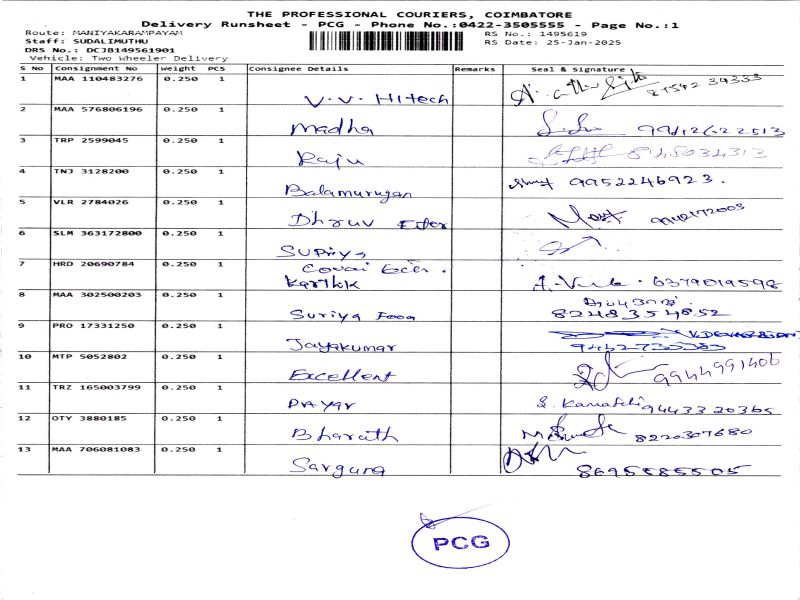 THE PROFESSIONAL COURIERS, COIMBATORE
Delivery Runsheet - PCG - Phone No.:0422-3505555 - Page No.:1
Route: MANIYAKARAMPAYAM RS No.: 1495619
Staff: SUDALIMUTHU RS Date: 25-Jan-2025
DRS No.: DCJB149561901
Vehicle: Two Wheeler Delivery
S No Consignment No Weight PCS Consignee Details Remarks Seal & Signature
1 MAA 110483276 0.250 1 V.V. Hitech
2 MAA 576806196 0.250 1 Madha
3 TRP 2599045 0.250 1 Raju 8148034313
4 TNJ 3128200 0.250 1 Balamurugan 9952246923.
5 VLR 2784026 0.250 1 Dhruv
6 SLM 363172800 0.250 1 Supriya
7 HRD 20690784 0.250 1 Covai
Karthik 6379019598
8 MAA 302500203 0.250 1 Suriya Food
9 PRO 17331250 0.250 1 Jayakumar
10 MTP 5052802 0.250 1 Excellent 9944991406
11 TRZ 165003799 0.250 1 Payar 9443320365
12 OTY 3880185 0.250 1 Bharath 8220307680
13 MAA 706081083 0.250 1 Sarguna
PCG